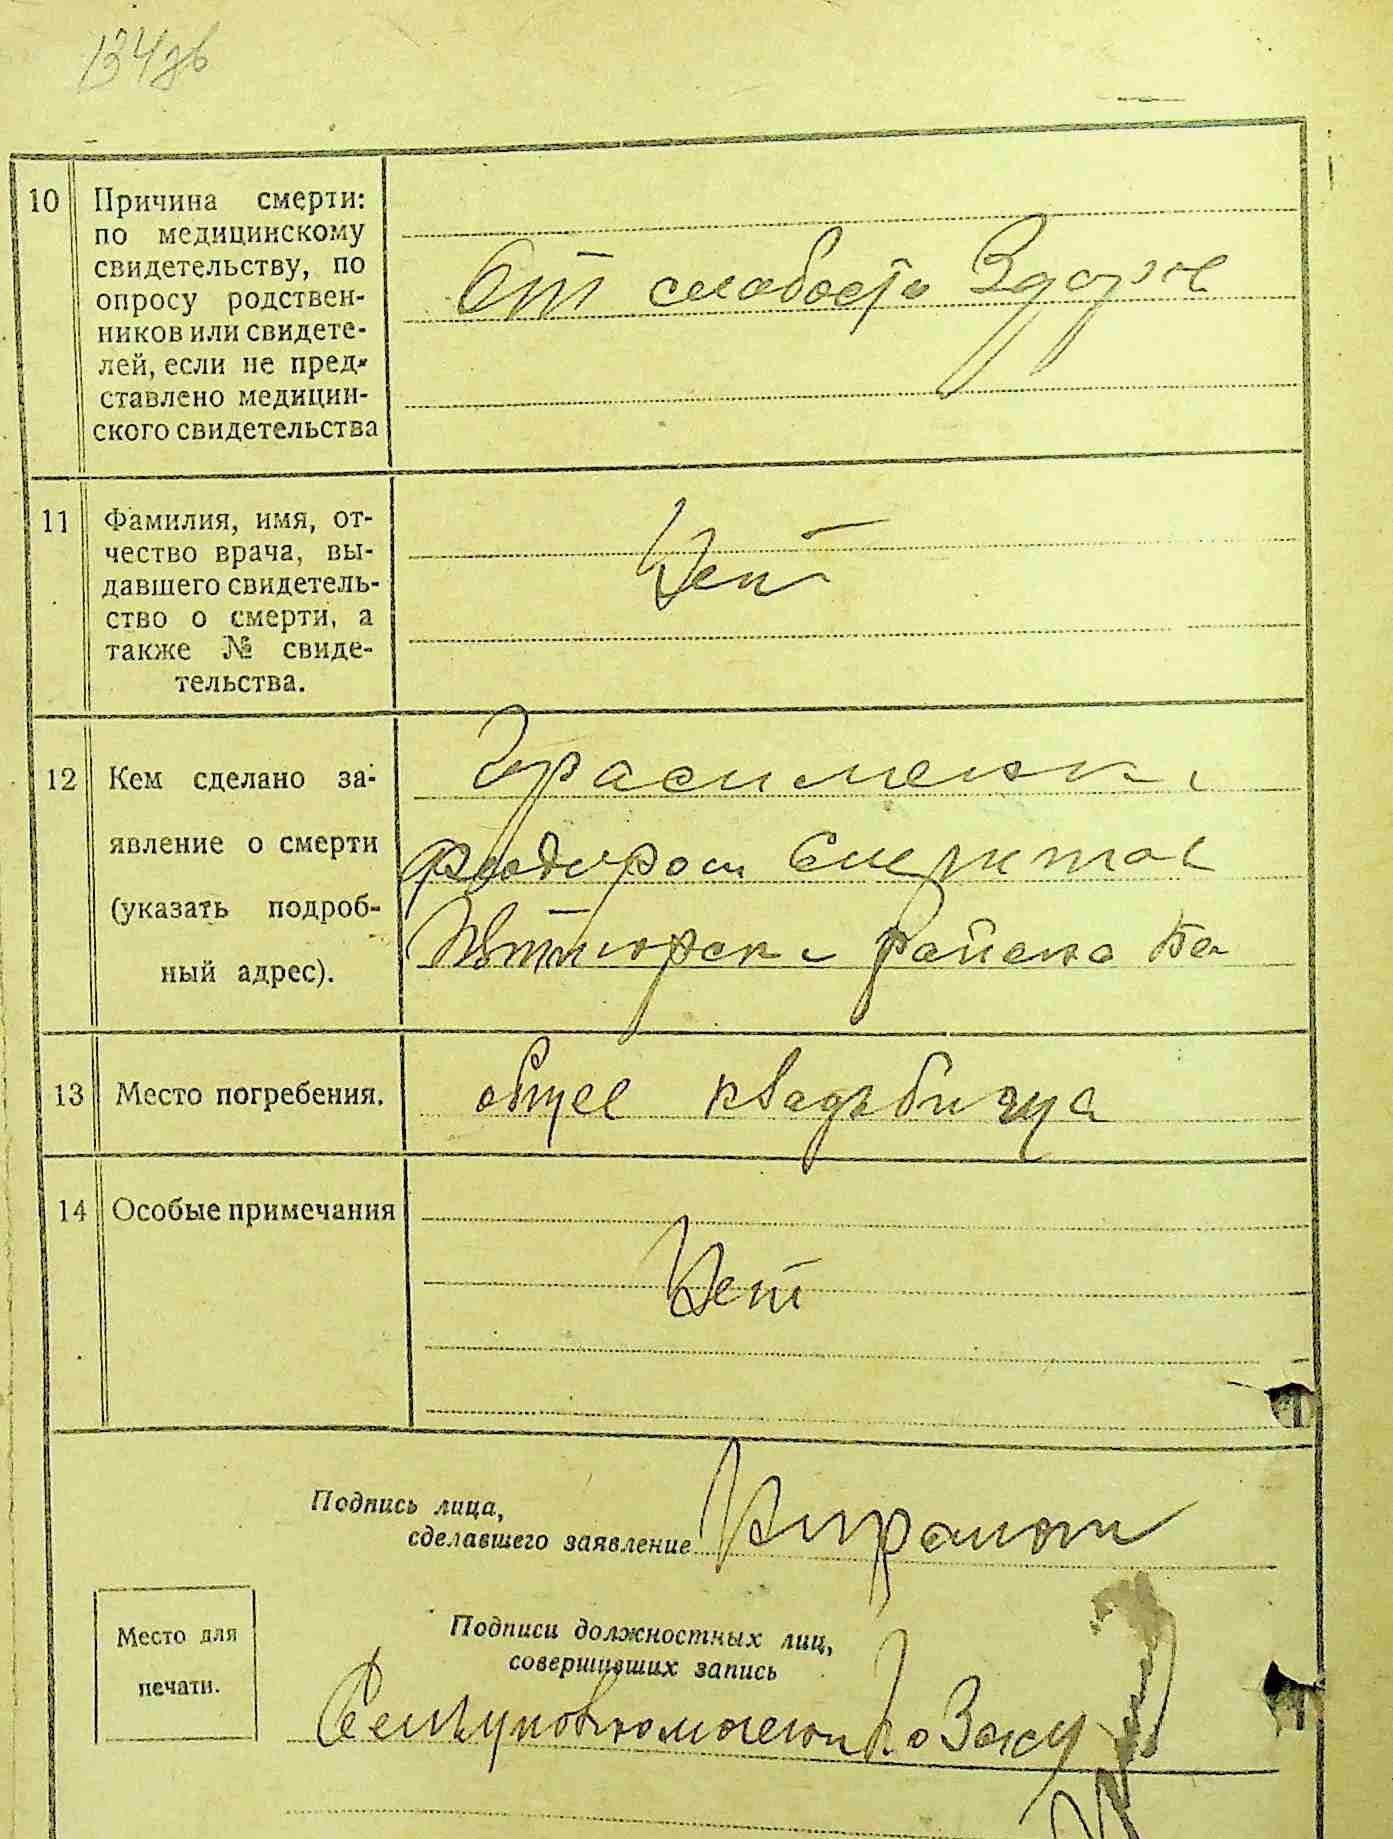 134зв
10 Причина смерти:
по медицинскому
свидетельству, по
опросу родствен-
ников или свидете-
лей, если не пред-
ставлено медицин-
ского свидетельства
От слабости Здоро
11 Фамилия, имя, от-
чество врача, вы-
давшего свидетель-
ство о смерти, а
также № свиде-
тельства.
Нет
12 Кем сделано за-
явление о смерти
(указать подроб-
ный адрес).
района
13 Место погребения.
общее квадьбища
14 Особые примечания
Нет
Подпись лица,
сделавшего заявление
Место для
печати.
Подписи должностных лиц,
совершивших запись